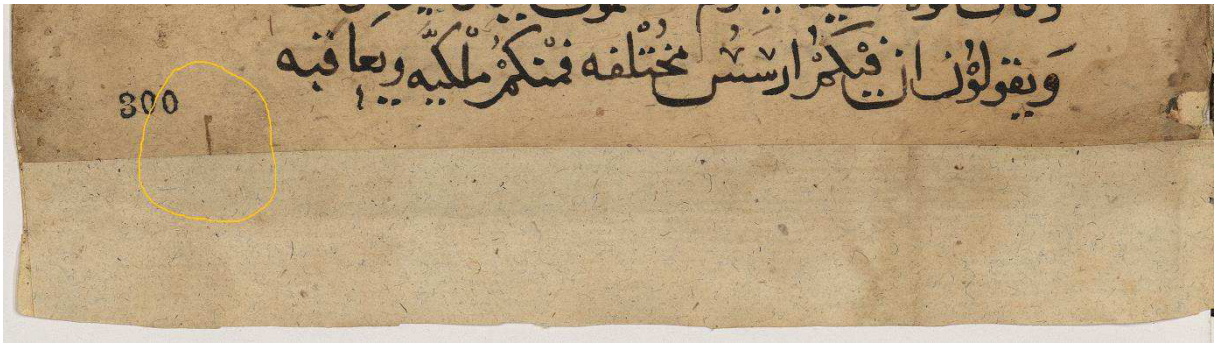 ويقولوْن ان فيْكمْ ارسسْ مختْلفه فمنكمْ ملْكيّه ويعاقبه
300